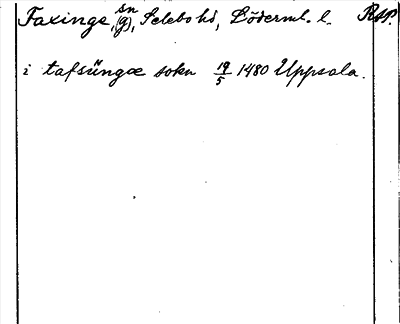 Taxinge, sn (g), Selebo hd, Söderml. l. RAP.
i tafsüngæ sokn 19/5 1480 Uppsala.